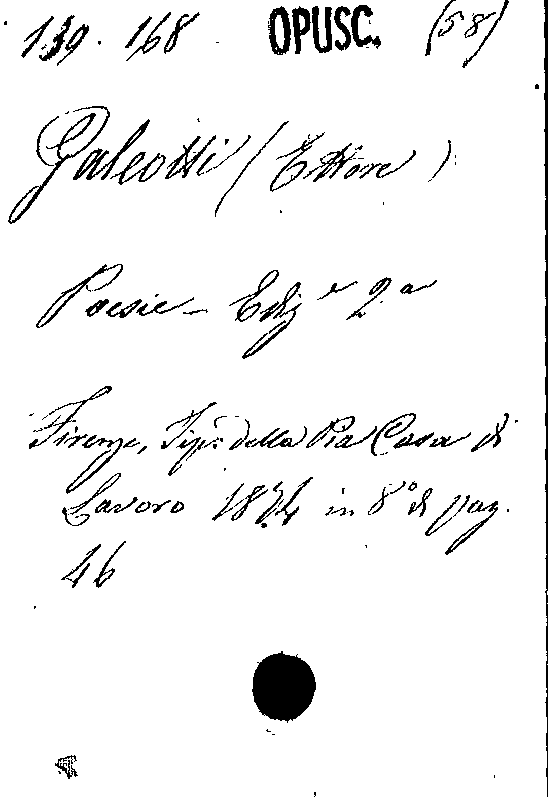 139. 168 OPUSC. (58)
Galeotti (Ettore)
Poesie - Ediz.e 2.a
Firenze, Tip. della Pia Casa di
Lavoro 1874 in 8° di pag.
46
A